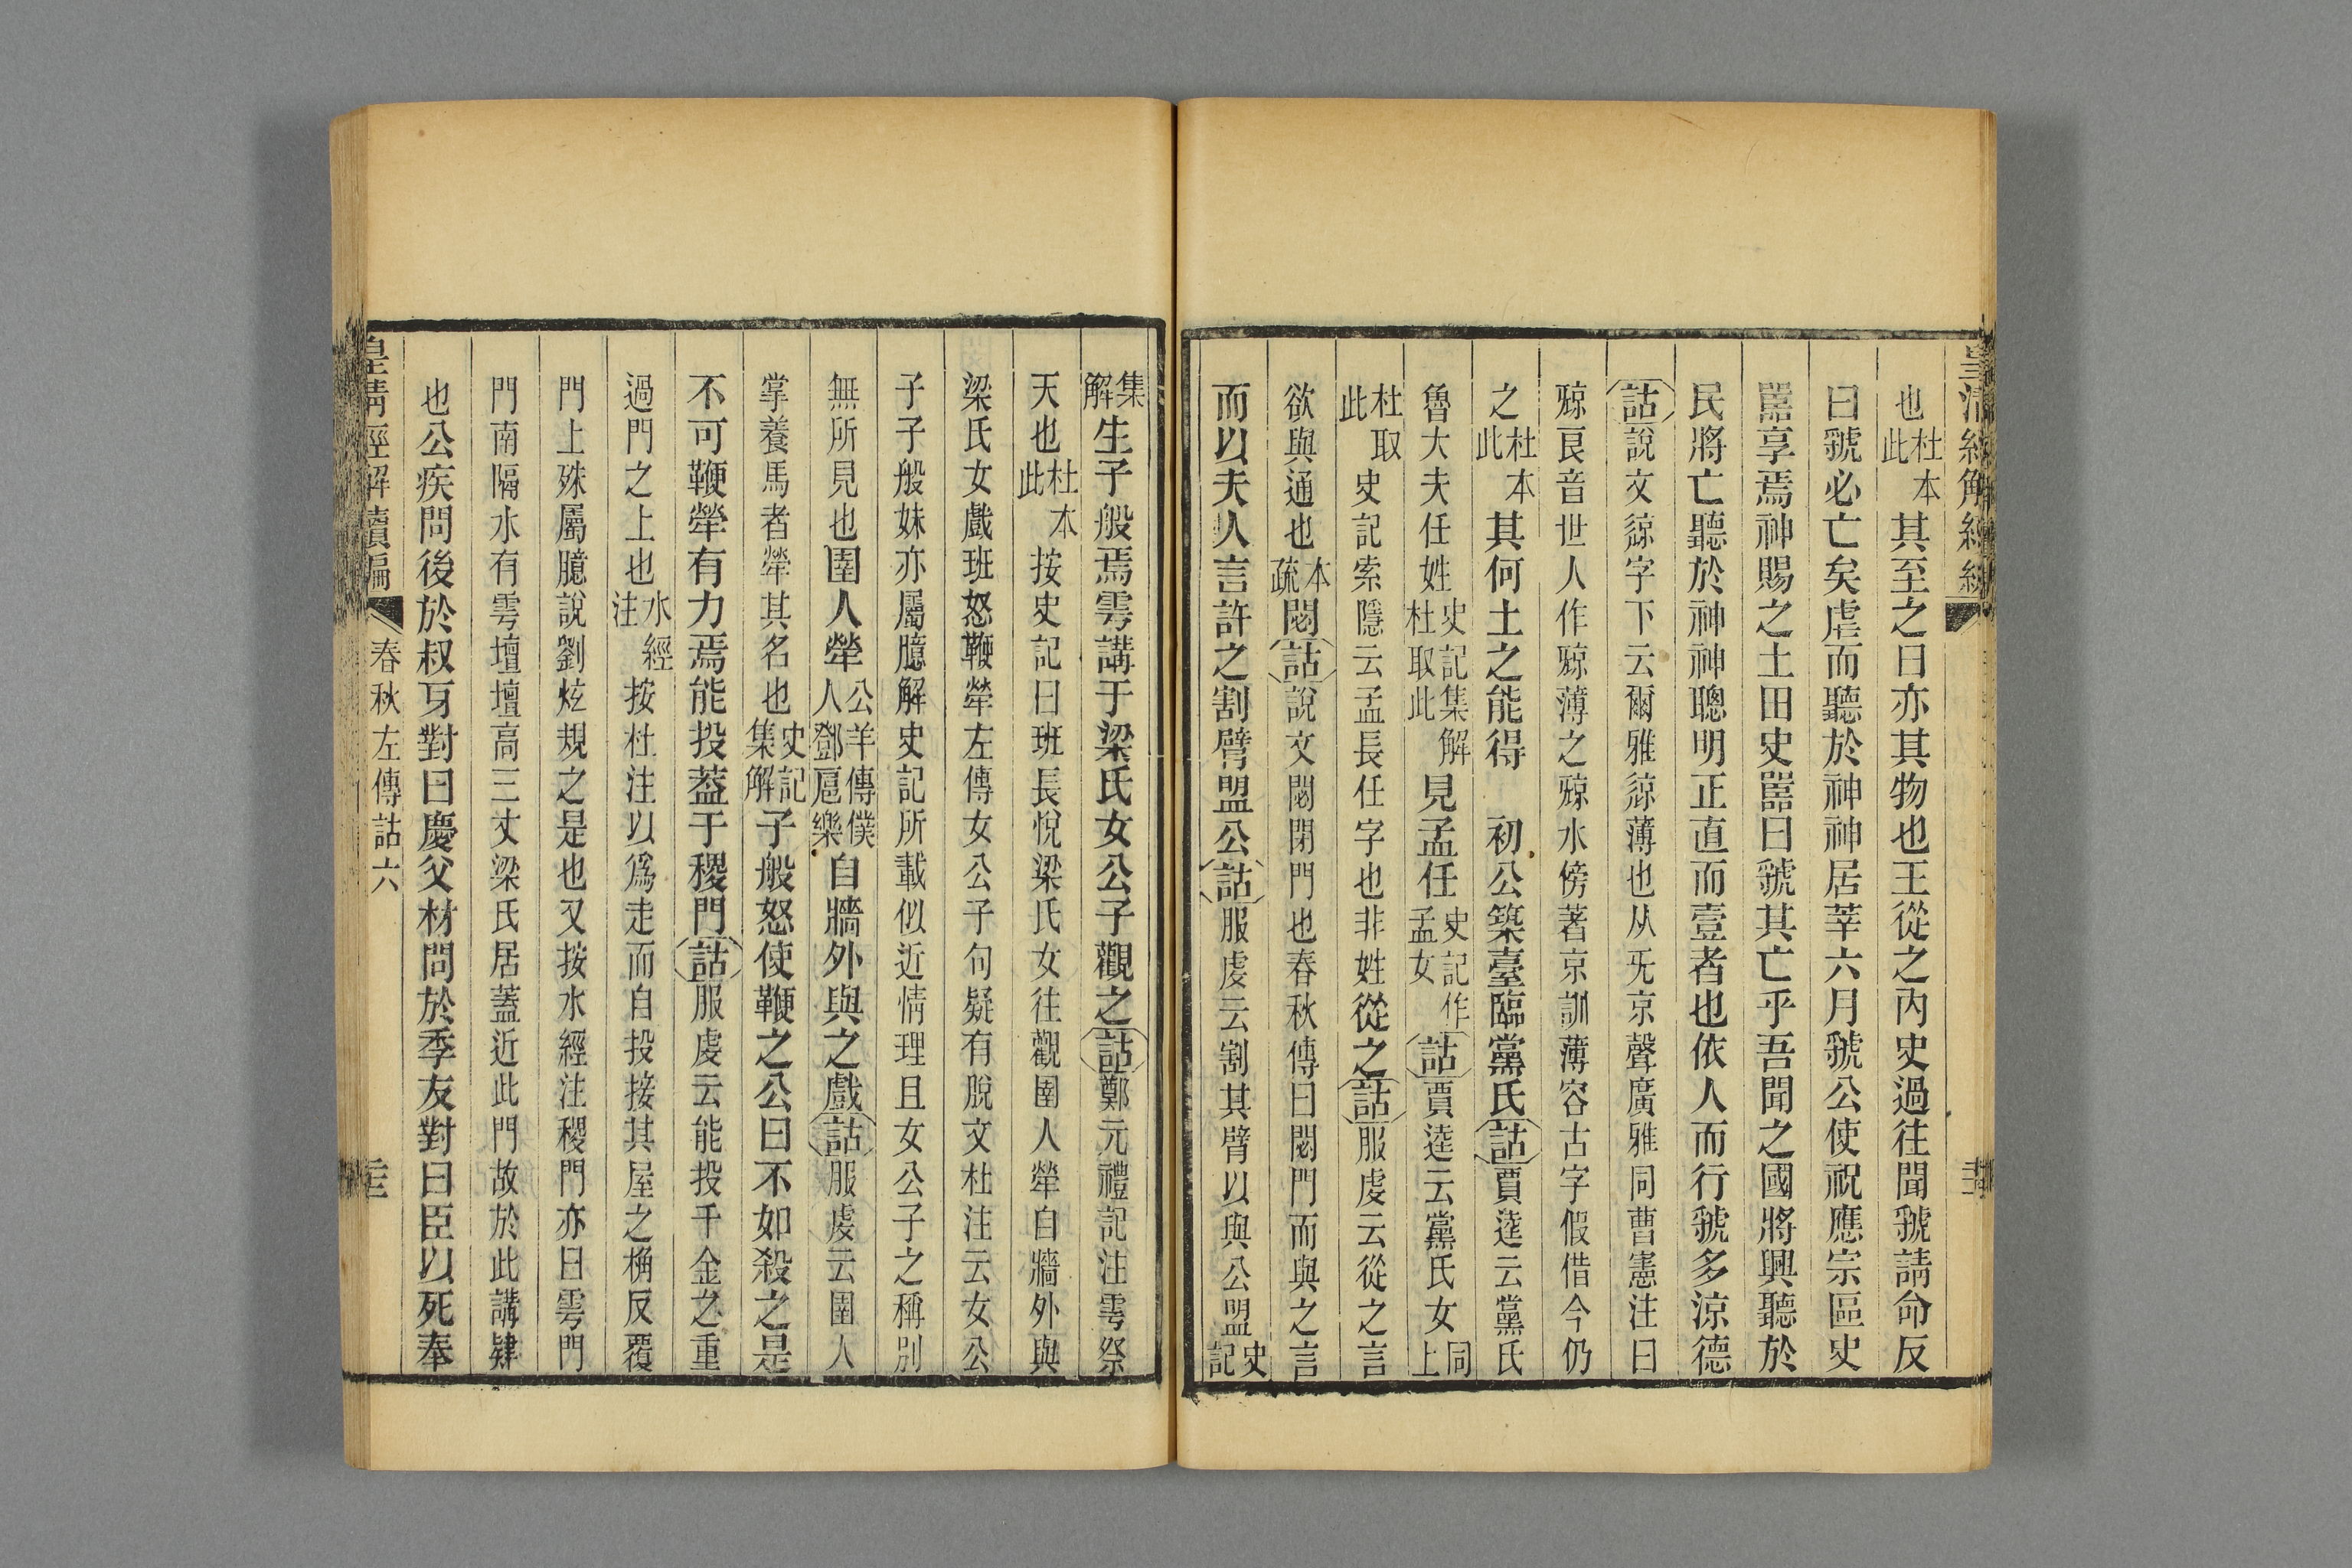 皇清經解續編
也杜本此其至之日亦其物也王從之內史過往聞虢請命反
曰虢必亡矣虐而聽於神神居莘六月虢公使祝應宗區史
嚚享焉神賜之土田史嚚曰虢其亡乎吾聞之國將興聽於
民將亡聽於神神聰明正直而壹者也依人而行虢多涼德
詁說文䣼字下云爾雅䣼薄也从旡京聲廣雅同曹憲注曰
䣼良音世人作䣼薄之䣼水傍著京訓薄容古字假借今仍
之杜本此其何土之能得 初公築臺臨黨氏詁賈逵云黨氏
魯大夫任姓史記集解杜取此見孟任史記作孟女詁賈逵云黨氏女同上
杜取此史記索隱云孟長任字也非姓從之詁服虔云從之言
欲與通也本疏閟詁說文閟閉門也春秋傳曰閟門而與之言
而以夫人言許之割臂盟公詁服虔云割其臂以與公盟史記
集解生子般焉雩講于梁氏女公子觀之詁鄭元禮記注雩祭
天也杜本此按史記曰班長悅梁氏女往觀圉人犖自牆外與
梁氏女戲班怒鞭犖左傳女公子句疑有脫文杜注云女公
子子般妹亦屬臆解史記所載似近情理且女公子之稱別
無所見也圉人犖公羊傳僕人鄧扈樂自牆外與之戲詁服虔云圉人
掌養馬者犖其名也史記集解子般怒使鞭之公曰不如殺之是
不可鞭犖有力焉能投蓋于稷門詁服虔云能投千金之重
過門之上也水經注按杜注以爲走而自投接其屋之桷反覆
門上殊屬臆說劉炫規之是也又按水經注稷門亦曰雩門
門南隔水有雩壇壇高三丈梁氏居蓋近此門故於此講肄
也公疾問後於叔牙對曰慶父材問於季友對曰臣以死奉
皇清經解續編 春秋左傳詁六